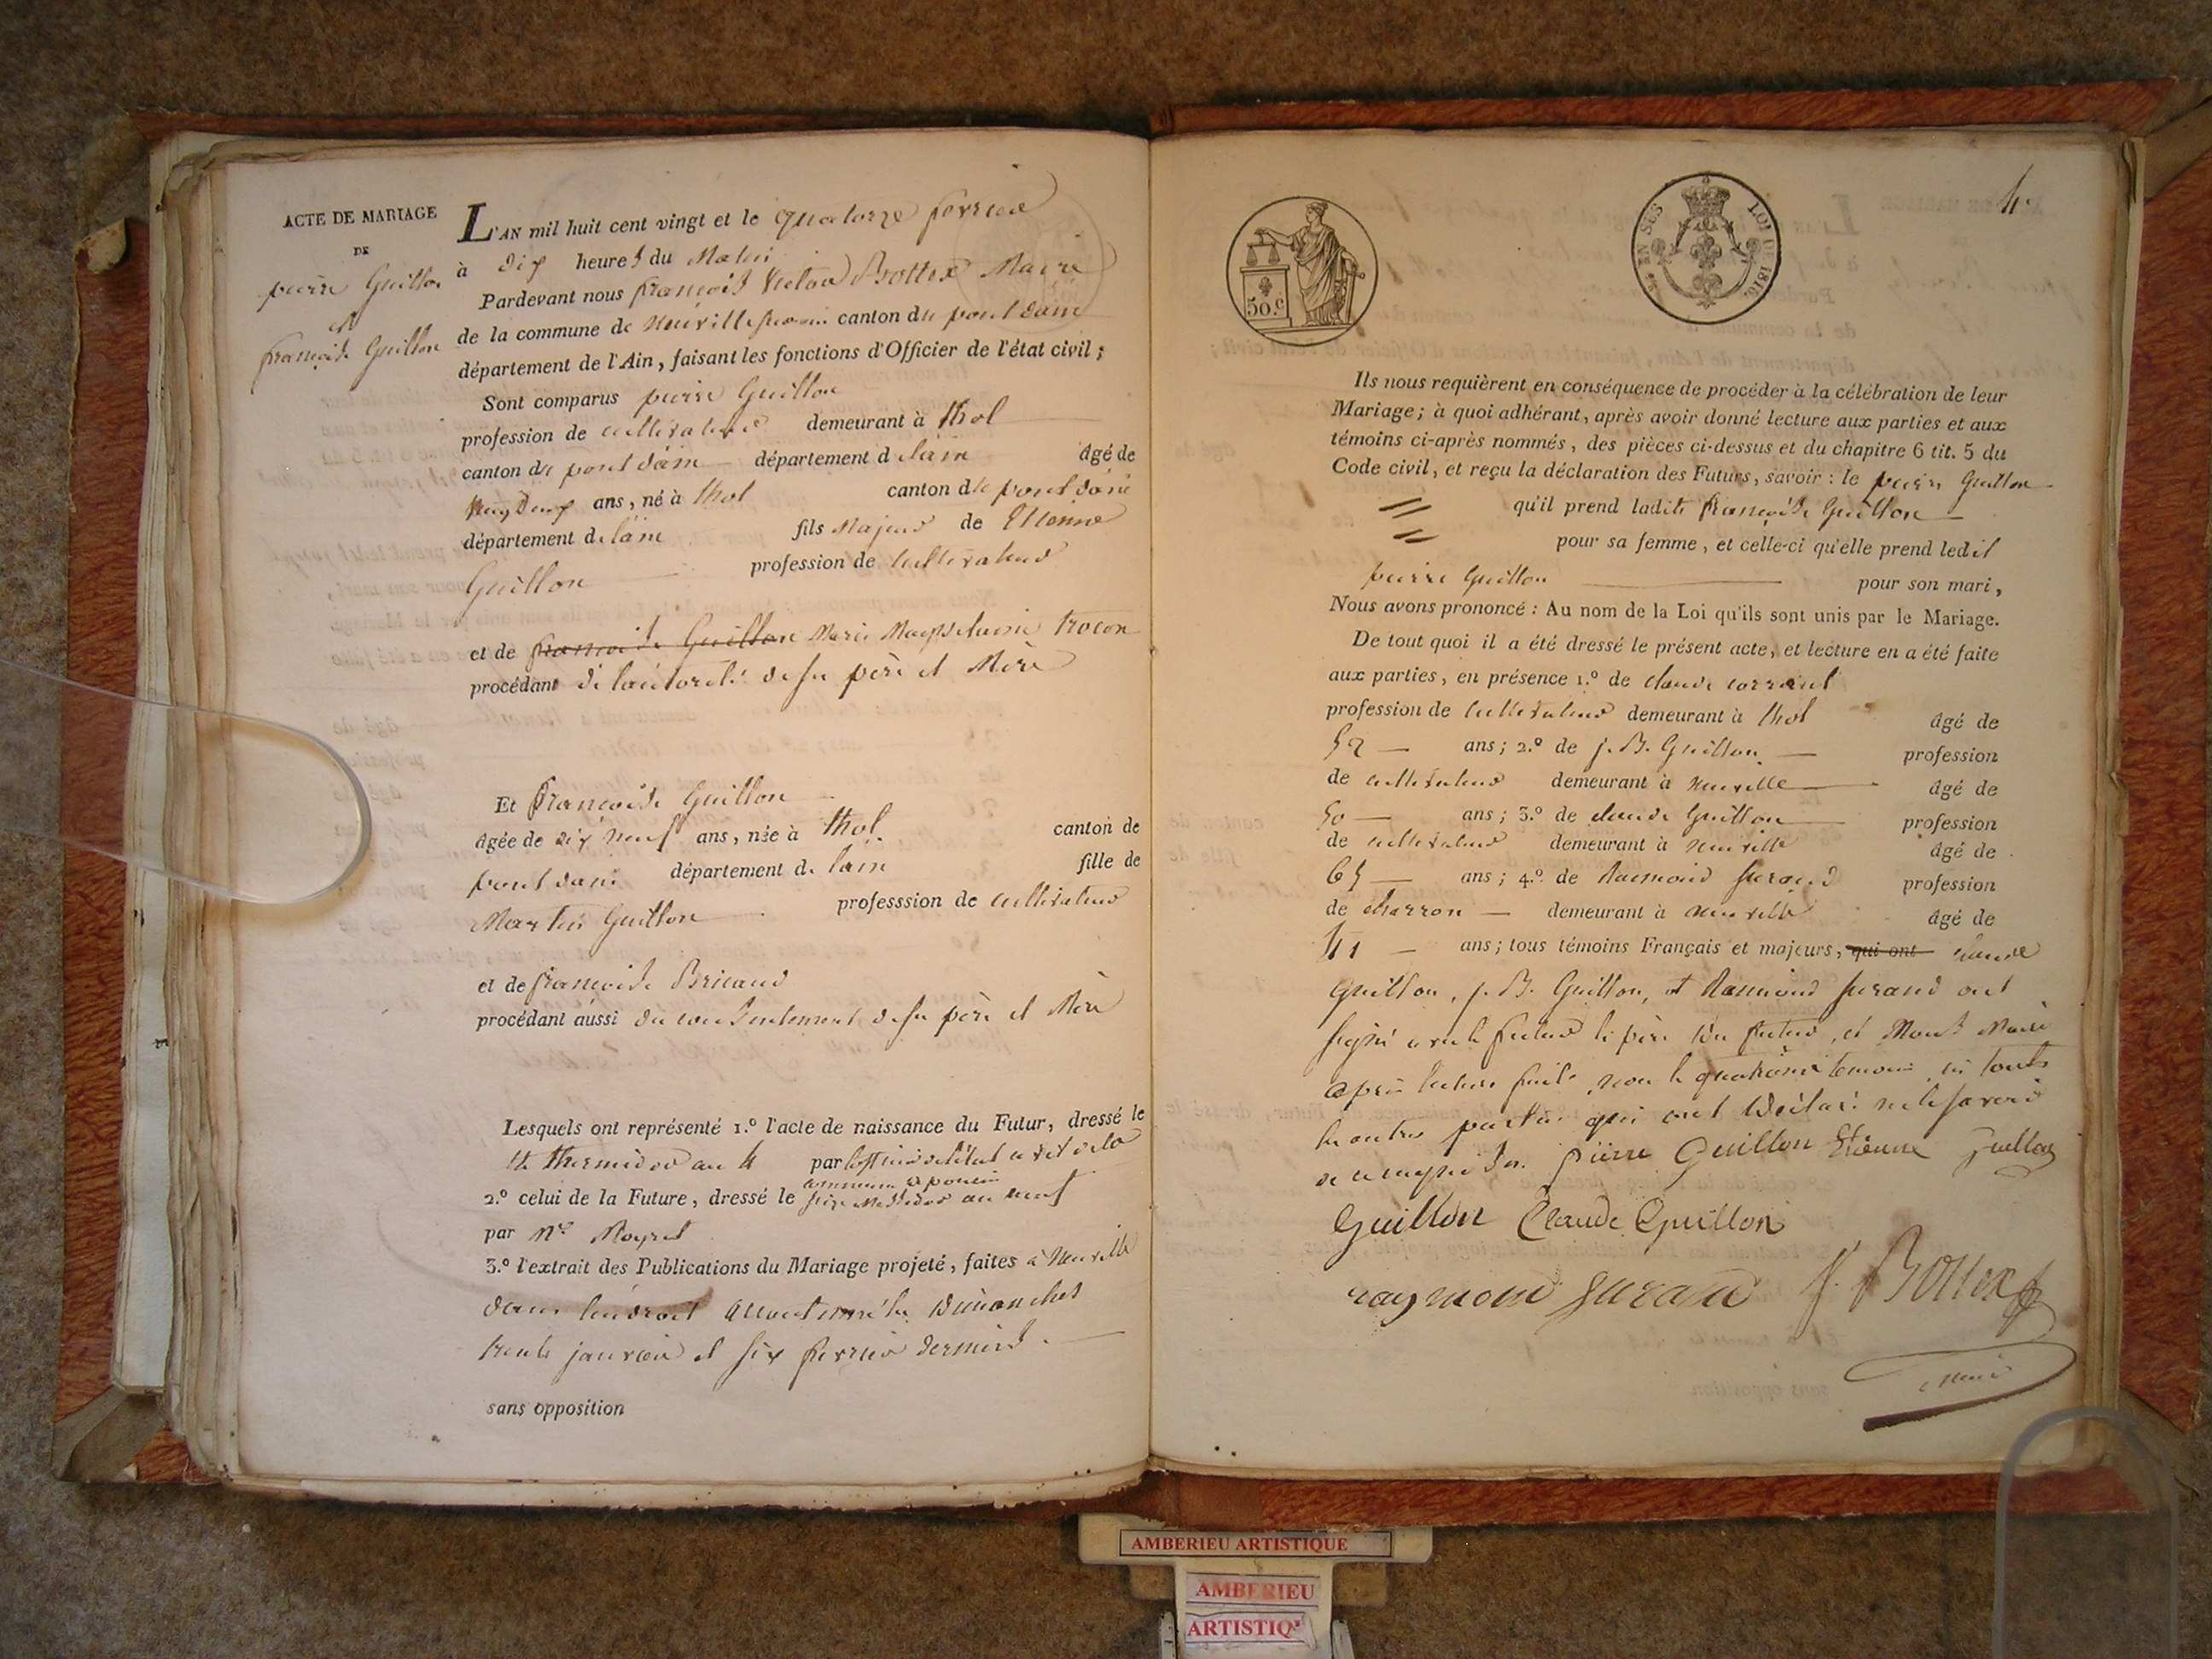 ACTE DE MARIAGE
DE
pierre Guillon
et
françoise Guillon
L'AN mil huit cent vingt et le quatorze fevrier
à dix heures du Matin
Pardevant nous françois Bottex Maire
de la commune de canton du pont dain
département de l'Ain, faisant les fonctions d'Officier de l'état civil ;
Sont comparus pierre Guillon
profession de cultivateur demeurant à thol
canton du pont dain département de lain âgé de
ans, né à thol canton du pont dain
département de lain fils Majeur de Etienne
Guillon profession de cultivateur
et de françoise Guillon Marie trocon
procédant de lautorité de ses père et Mère
Et françoise Guillon
âgée de dix neuf ans, née à thol canton de
pont dain département de lain fille de
Martin Guillon professsion de cultivateur
et de françoise Bricaud
procédant aussi du consentement de ses père et Mère
Lesquels ont représenté 1.º l'acte de naissance du Futur, dressé le
thermidor an 4 par
2.º celui de la Future, dressé le an neuf
par
3.º l'extrait des Publications du Mariage projeté, faites à Neuville
dans lendroit accoutumé les Dimanches
trente janvier et six fevrier derniers.
sans opposition
4.
50.c
EN SUS LOI DE 1816.
Ils nous requièrent en conséquence de procéder à la célébration de leur
Mariage ; à quoi adhérant, après avoir donné lecture aux parties et aux
témoins ci-après nommés, des pièces ci-dessus et du chapitre 6 tit. 5 du
Code civil, et reçu la déclaration des Futurs, savoir : le pierre Guillon
qu'il prend ladite françoise Guillon
pour sa femme, et celle-ci qu'elle prend ledit
pierre Guillon pour son mari,
Nous avons prononcé : Au nom de la Loi qu'ils sont unis par le Mariage.
De tout quoi il a été dressé le présent acte, et lecture en a été faite
aux parties, en présence 1.º de claude
profession de cultivateur demeurant à thol âgé de
52 ans ; 2.º de j. B. Guillon profession
de cultivateur demeurant à neuville âgé de
50 ans ; 3.º de claude Guillon profession
de cultivateur demeurant à neuville âgé de
65 ans ; 4.º de Raimond profession
de charron demeurant à neuville âgé de
41 ans ; tous témoins Français et majeurs, qui ont claude
Guillon, j. B. Guillon, et Raimond ont
signé avec le futur le père du futur, et Nous Maire
après lecture faite, non le quatrième temoin ni toutes
les autres parties qui ont déclaré ne le savoir
de ce enquis. pierre Guillon Etienne Guillon
Guillon Claude Guillon
raymond f. Bottex
maire
AMBERIEU ARTISTIQUE
AMBERIEU
ARTISTIQ